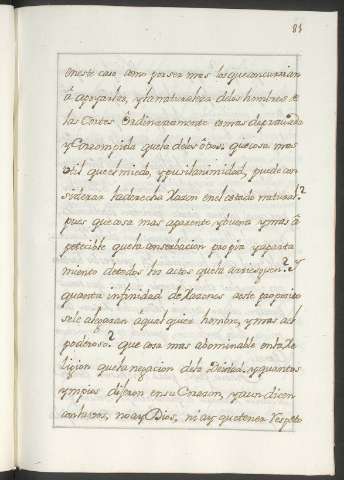 81
en este caso, como por ser mas los que concurrian
á apoyarlos, y la naturaleza delos hombres de
las Cortes Ordinariamente es mas depravada
y Corrompida que la delos otros, que cosa mas
util que el miedo, y pusilanimidad, puede con
siderar la derecha Razon en el estado natural?
pues que cosa mas aparente y buena y mas á
petecible que la conserbacion propia y aparta
miento de todos los actos que la arriesguen? Y
quanta infinidad de Razones a este proposito
sele alegaran á qualquier hombre, y mas al
poderoso? que cosa mas abominable en la Re
ligion que la negacion dela Deidad. y quantos
ympios dijeron en su Corazon, y aun dicen
con la voz, no ay Dios, ni ay que tener Respeto